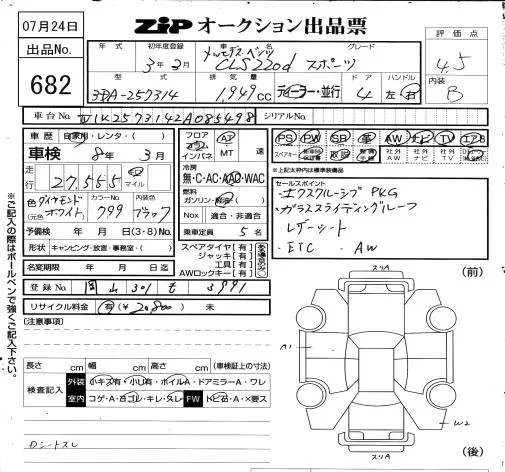 07月24日
出品No.
682
ZIP オークション出品票
年式 初年度登録 車名 グレード
3年3月 メルセデス・ベンツ CLS220d スポーツ
評価点
4.5
内装
B
型式 排気量 ドア ハンドル
3DA-257314 1,949cc ディーラー・並行 4 左右
車台No. W1K2573142A085498 シリアルNo.
車歴 自家用・レンタ・( )
車検 8年 3月
走行 27,555 マイル
フロア コラム インパネ AT MT 速
冷房 無・C・AC・AAC・WAC
PS PW SR 革 AW ナビ TV エアB
スペアキー 取説 社外AW 社外ナビ 社外TV
※上記太枠内は標準装備品
色(元色) ダイヤモンドホワイト カラーNo. 799 内装色 ブラック
燃料 ガソリン・軽油( )
Nox 適合・非適合
予備検 年 月 日(3・8)No.
乗車定員 5名
形状 キャンピング・放送・事務室( )
スペアタイヤ[有]
ジャッキ[有]
工具[有]
AWロックキー[有]
ある場合○
名変期限 年 月 日迄
登録No.
301
3991
リサイクル料金 有(¥20,800) 未
セールスポイント
・エクスクルーシブPKG
・ガラススライディングルーフ
・レザーシート
・ETC ・AW
[注意事項]
長さ cm 幅 cm 高さ cm (車検証上の寸法)
検査記入
外装 小キズ有・小凹有・ボイルA・ドアミラーA・ワレ
室内 コゲ・A・ヨゴレ・キレ・スレ FW トビ石・A・×要ス
Dシートスレ
スリA
(前)
A1
W2
スリA
(後)
※ご記入の際はボールペンで強くご記入下さい。